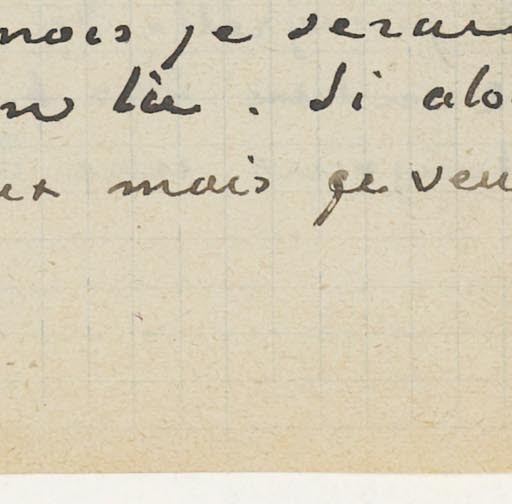 mois je serai
en lie. Si alo
ux mais je veu